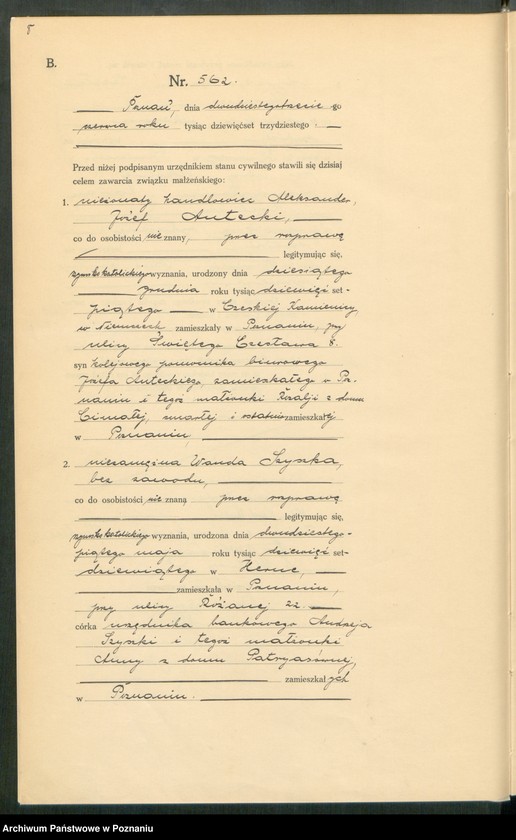 8
B.
Nr. 562.
Poznań, dnia dwudziestegotrzecie go
czerwca roku tysiąc dziewięćset trzydziestego
Przed niżej podpisanym urzędnikiem stanu cywilnego stawili się dzisiaj
celem zawarcia związku małżeńskiego:
1. nieżonaty handlowiec Aleksander,
Józef Antecki,
co do osobistości nie znany, przez rozprawę
legitymując się.
rzymskokatolickiego wyznania, urodzony dnia dziesiątego
grudnia roku tysiąc dziewięć set-
piątego w Czeskiej Kamienicy
w Niemczech zamieszkały w Poznaniu, przy
ulicy Świętego Czesława 8.
syn kolejowego pomocnika biurowego
Józefa Anteckiego, zamieszkałego w Po-
znaniu i tegoż małżonki Rozalji z domu
zmarłej i ostatnio zamieszkałej
w Poznaniu,
2. niezamężna Wanda Szyszka,
bez zawodu,
co do osobistości nie znaną, przez rozprawę
legitymując się,
rzymskokatolickiego wyznania, urodzona dnia dwudziestego-
piątego maja roku tysiąc dziewięć set-
dziewiątego w Herne,
zamieszkała w Poznaniu,
przy ulicy Różanej 22.
córka urzędnika bankowego Andrzeja
Szyszki i tegoż małżonki
Anny z domu
zamieszkałych
w Poznaniu.
Archiwum Państwowe w Poznaniu